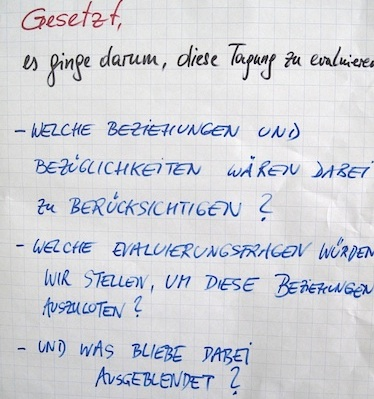 Gesetzt,
es ginge darum, diese Tagung zu evaluieren
- WELCHE BEZIEHUNGEN UND
BEZÜGLICHKEITEN WÄREN DABEI
ZU BERÜCKSICHTIGEN?
- WELCHE EVALUIERUNGSFRAGEN WÜRDEN
WIR STELLEN, UM DIESE BEZIEHUNGEN
AUSZULOTEN?
- UND WAS BLIEBE DABEI
AUSGEBLENDET?